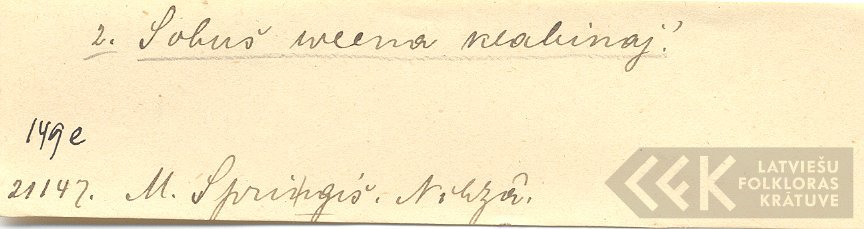 2. Sobuš weena klabinaj!
149e
21147. M. Springis. Nihzâ.
LATVIEŠU
FOLKLORAS
KRĀTUVE